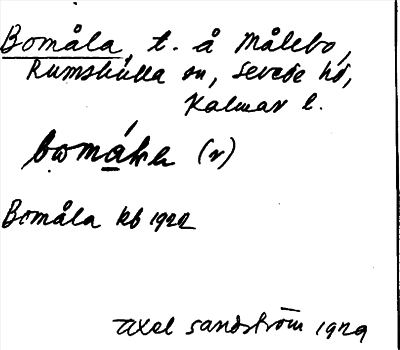 Bomåla, t. å Målebo,
Rumskulla sn, Sevede hd,
Kalmar l.
(v)
Bomåla kb 1922
Axel Sandström 1929